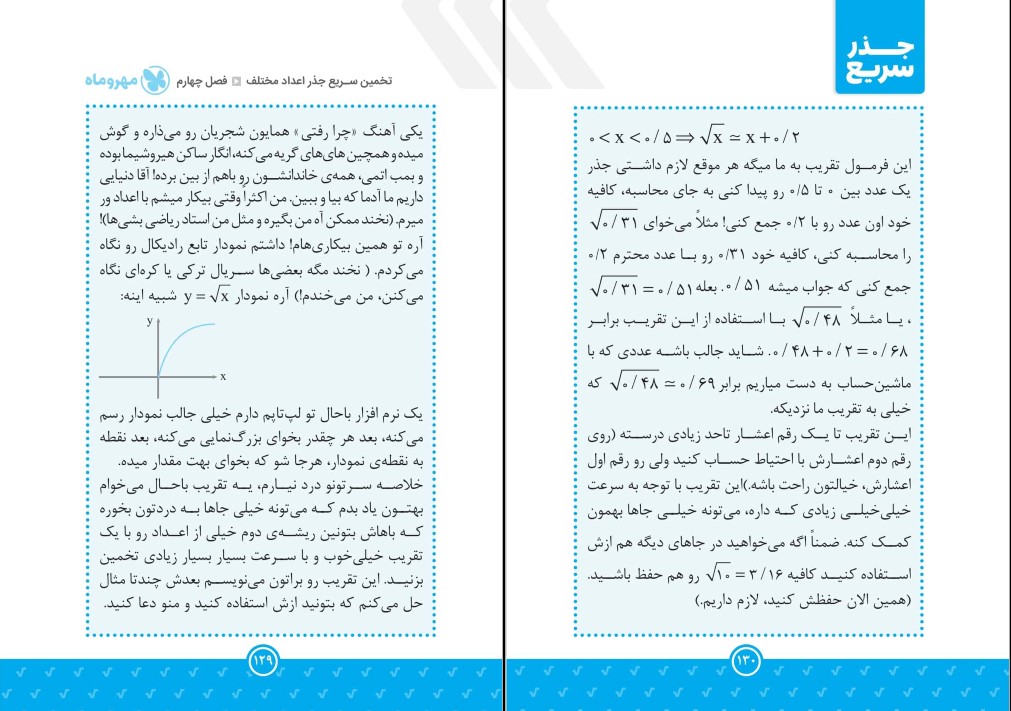 جـذر
سریع
۰ < x < ۰/۵ ⇒ √x ≃ x + ۰/۲
این فرمـول تقریب به ما میگه هر موقع لازم داشتـی جذر
یک عدد بین ۰ تا ۰/۵ رو پیدا کنی به جای محاسبه، کافیه
خود اون عدد رو با ۰/۲ جمع کنی! مثلاً می‌خوای √۰/۳۱
را محاسـبه کنی، کافیه خود ۰/۳۱ رو بـا عدد محترم ۰/۲
جمع کنی که جواب میشه ۰/۵۱. بعله √۰/۳۱ = ۰/۵۱
، یـا مثـلاً √۰/۴۸ بـا اسـتفاده از ایـن تقریـب برابـر
۰/۴۸ + ۰/۲ = ۰/۶۸. شـاید جالب باشـه عددی که با
ماشین‌حساب به دست میاریم برابر √۰/۴۸ ≃ ۰/۶۹ که
خیلی به تقریب ما نزدیکه.
ایـن تقریب تا یـک رقم اعشـار تاحد زیادی درسـته (روی
رقم دوم اعشـارش با احتیاط حسـاب کنید ولی رو رقم اول
اعشارش، خیالتون راحت باشه.)این تقریب با توجه به سرعت
خیلی‌خیلـی زیادی کـه داره، می‌تونه خیلـی جاها بهمون
کمـک کنه. ضمناً اگه می‌خواهید در جاهای دیگه هم ازش
اسـتفاده کنیـد کافیه √۱۰ = ۳/۱۶ رو هم حفظ باشـید.
(همین الان حفظش کنید، لازم داریم.)
۱۳۰
تخمین سـریع جذر اعداد مختلف فصل چهارم مهروماه
یکی آهنگ «چرا رفتی» همایون شجریان رو می‌ذاره و گوش
میده‌و همچین های‌های گریه می‌کنه، انگار ساکن هیروشیما بوده
و بمب اتمی، همه‌ی خاندانشـون رو باهم از بین برده! آقا دنیایی
داریم ما آدما که بیا و ببین. من اکثراً وقتی بیکار میشم با اعداد ور
میرم. (نخند ممکن آه من بگیره و مثل من استاد ریاضی بشی‌ها)!
آره تو همین بیکاری‌هام! داشتم نمودار تابع رادیکال رو نگاه
می‌کردم. ( نخند مگه بعضی‌ها سـریال ترکی یا کره‌ای نگاه
می‌کنن، من می‌خندم!) آره نمودار y = √x شبیه اینه:
y
x
یک نرم افزار باحال تو لپ‌تاپم دارم خیلی جالب نمودار رسم
می‌کنه، بعد هر چقدر بخوای بزرگ‌نمایی می‌کنه، بعد نقطه
به نقطه‌ی نمودار، هرجا شو که بخوای بهت مقدار میده.
خلاصـه سـرتونو درد نیـارم، یـه تقریب باحـال می‌خوام
بهتـون یاد بدم کـه می‌تونه خیلی جاها بـه دردتون بخوره
کـه باهاش بتونین ریشـه‌ی دوم خیلی از اعـداد رو با یک
تقریب خیلی‌خوب و با سـرعت بسیار بسیار زیادی تخمین
بزنیـد. این تقریب رو براتون می‌نویسـم بعدش چندتا مثال
حل می‌کنم که بتونید ازش استفاده کنید و منو دعا کنید.
۱۲۹